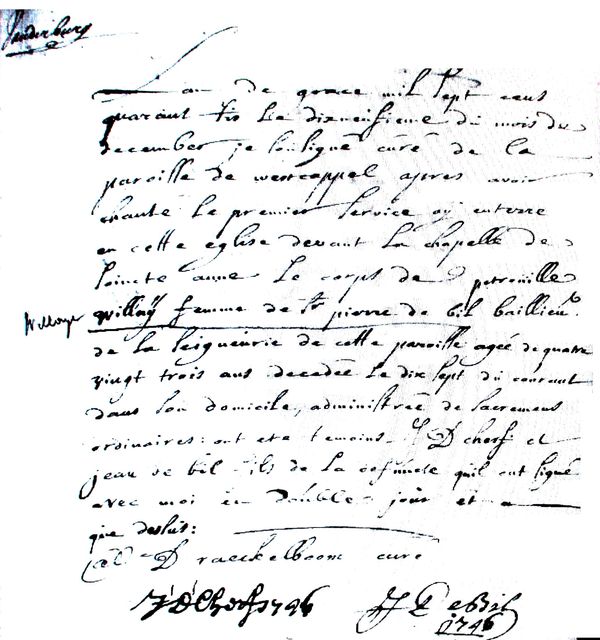 L'an de grace mil sept cens
quarant six Le dixneufieme du mois du
december je soussigné curé de La
paroisse de westcappel apres avoir
chanté Le premier service ay enterré
en cette eglise devant La chapelle de
saincte anne Le corps de petronille
Willaÿ femme de Sr pierre de bil baillieu
de La seigneurie de cette paroisse ageé de quatre
vingt trois ans decedeé Le dix sept du courant
dans son domicile, administreé de sacremens
ordinaires: ont eté temoins D cherf et
jean de bil fils de La defuncte qu'il ont signé
avec moi en double jour et a
que dessus:
D raeckelboom curé
D Cherf 1746
J De Bil
1746